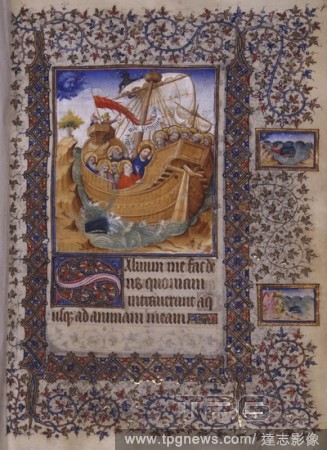 Saluum me fac de
us quoniam
intrauerunt aq
usq ad animam meam
TPG
www.tpgnews.com/ 達志影像